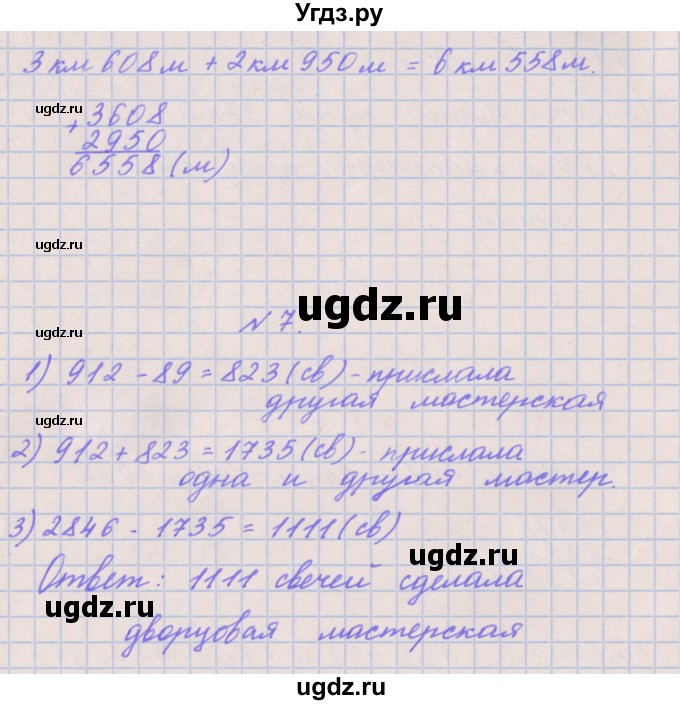 Угдз.ру
3 км 608 м + 2 км 950 м = 6 км 558 м.
ugdz.ru
+ 3608
2950
6558 (м)
ugdz.ru
ugdz.ru
ugdz.ru
ugdz.ru
№ 7.
1) 912 - 89 = 823 (св) - прислала
другая мастерская
ugdz.ru
2) 912 + 823 = 1735 (св) - прислала
одна и другая мастер.
ugdz.ru
3) 2846 - 1735 = 1111 (св)
ugdz.ru
Ответ: 1111 свечей сделала
ugdz.ru
дворцовая мастерская
ugdz.ru
ugdz.ru